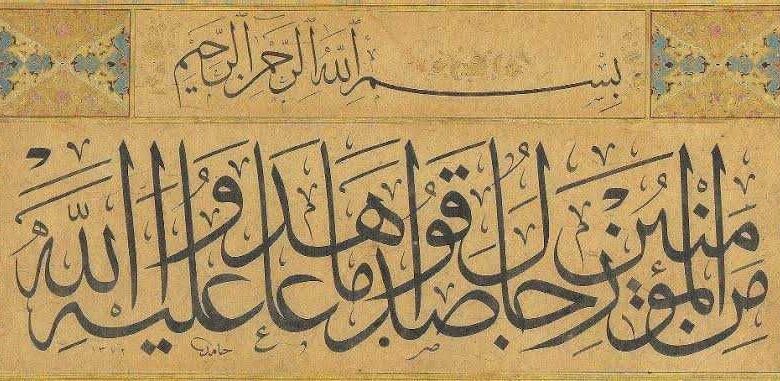 بِسْمِ اللّٰهِ الرَّحْمٰنِ الرَّحِيمِ
مِنَ الْمُؤْمِنِينَ رِجَالٌ صَدَقُوا مَا عَاهَدُوا اللّٰهَ عَلَيْهِ
حامد